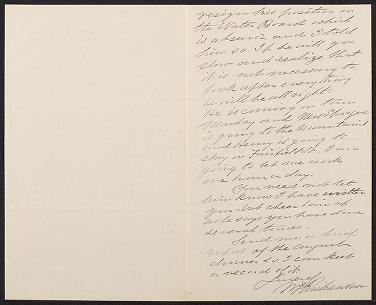 resign his position on
the Water Board which
is absurd and I told
him so. If he will go
slow and realize that
it is not necessary to
look after everything
he will be all right.
He is coming in town
Monday and Mrs
is going to the Mountains
and Henry is going to
stay in Fairfield St. I am
going to let me work
one hour a day.
You need not let
him know I have written
you but cheer him up
as he says you have done
several times.
Send me a brief
report of the
dinner so I can keep
a record of it.
Sincerely
Richardson